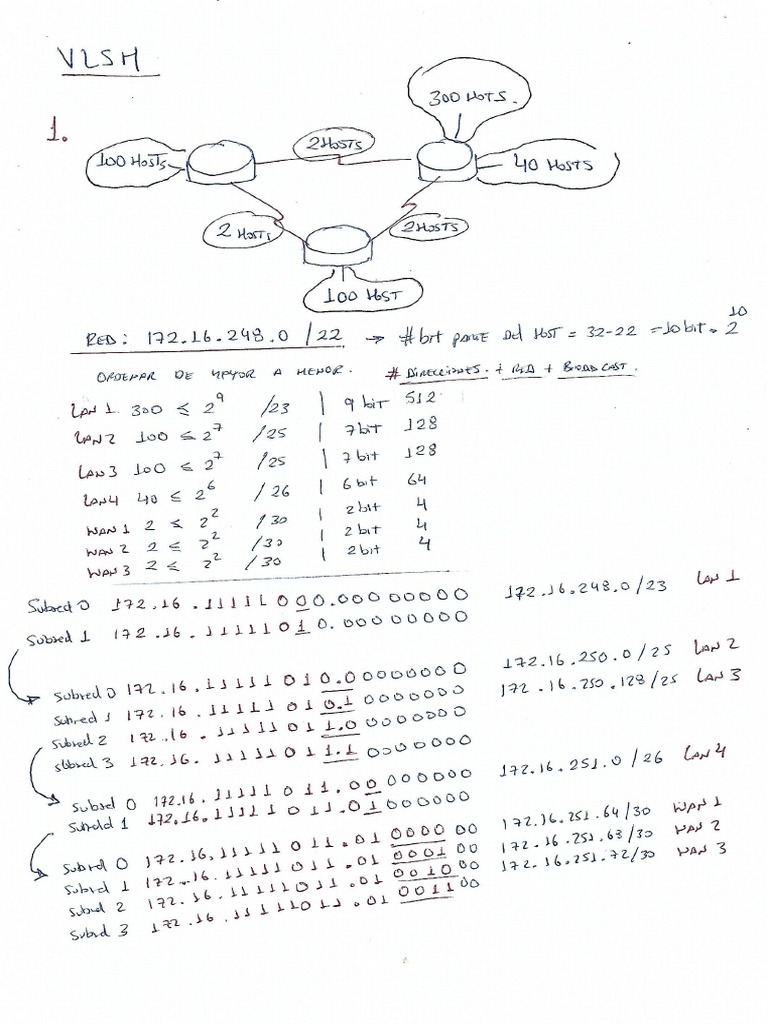 VLSM
1.
300 HOTS.
100 HOSTS
2 HOSTS
40 HOSTS
2 HOSTS
2 HOSTS
100 HOST
RED: 172.16.248.0 /22 → # bit parte del HOST = 32-22 = 10 bit = 2^10
ORDENAR DE MAYOR A MENOR. # DIRECCIONES. + RED + BROADCAST.
LAN 1 300 ≤ 2^9 /23 | 9 bit 512
LAN 2 100 ≤ 2^7 /25 | 7 bit 128
LAN 3 100 ≤ 2^7 /25 | 7 bit 128
LAN 4 40 ≤ 2^6 /26 | 6 bit 64
WAN 1 2 ≤ 2^2 /30 | 2 bit 4
WAN 2 2 ≤ 2^2 /30 | 2 bit 4
WAN 3 2 ≤ 2^2 /30 | 2 bit 4
Subred 0 172.16.11111000.00000000 172.16.248.0/23 LAN 1
Subred 1 172.16.11111010.00000000
Subred 0 172.16.11111010.00000000 172.16.250.0/25 LAN 2
Subred 1 172.16.11111010.10000000 172.16.250.128/25 LAN 3
Subred 2 172.16.11111011.00000000
Subred 3 172.16.11111011.10000000
Subred 0 172.16.11111011.00000000 172.16.251.0/26 LAN 4
Subred 1 172.16.11111011.01000000
Subred 0 172.16.11111011.01000000 172.16.251.64/30 WAN 1
Subred 1 172.16.11111011.01000100 172.16.251.68/30 WAN 2
Subred 2 172.16.11111011.01001000 172.16.251.72/30 WAN 3
Subred 3 172.16.11111011.01001100